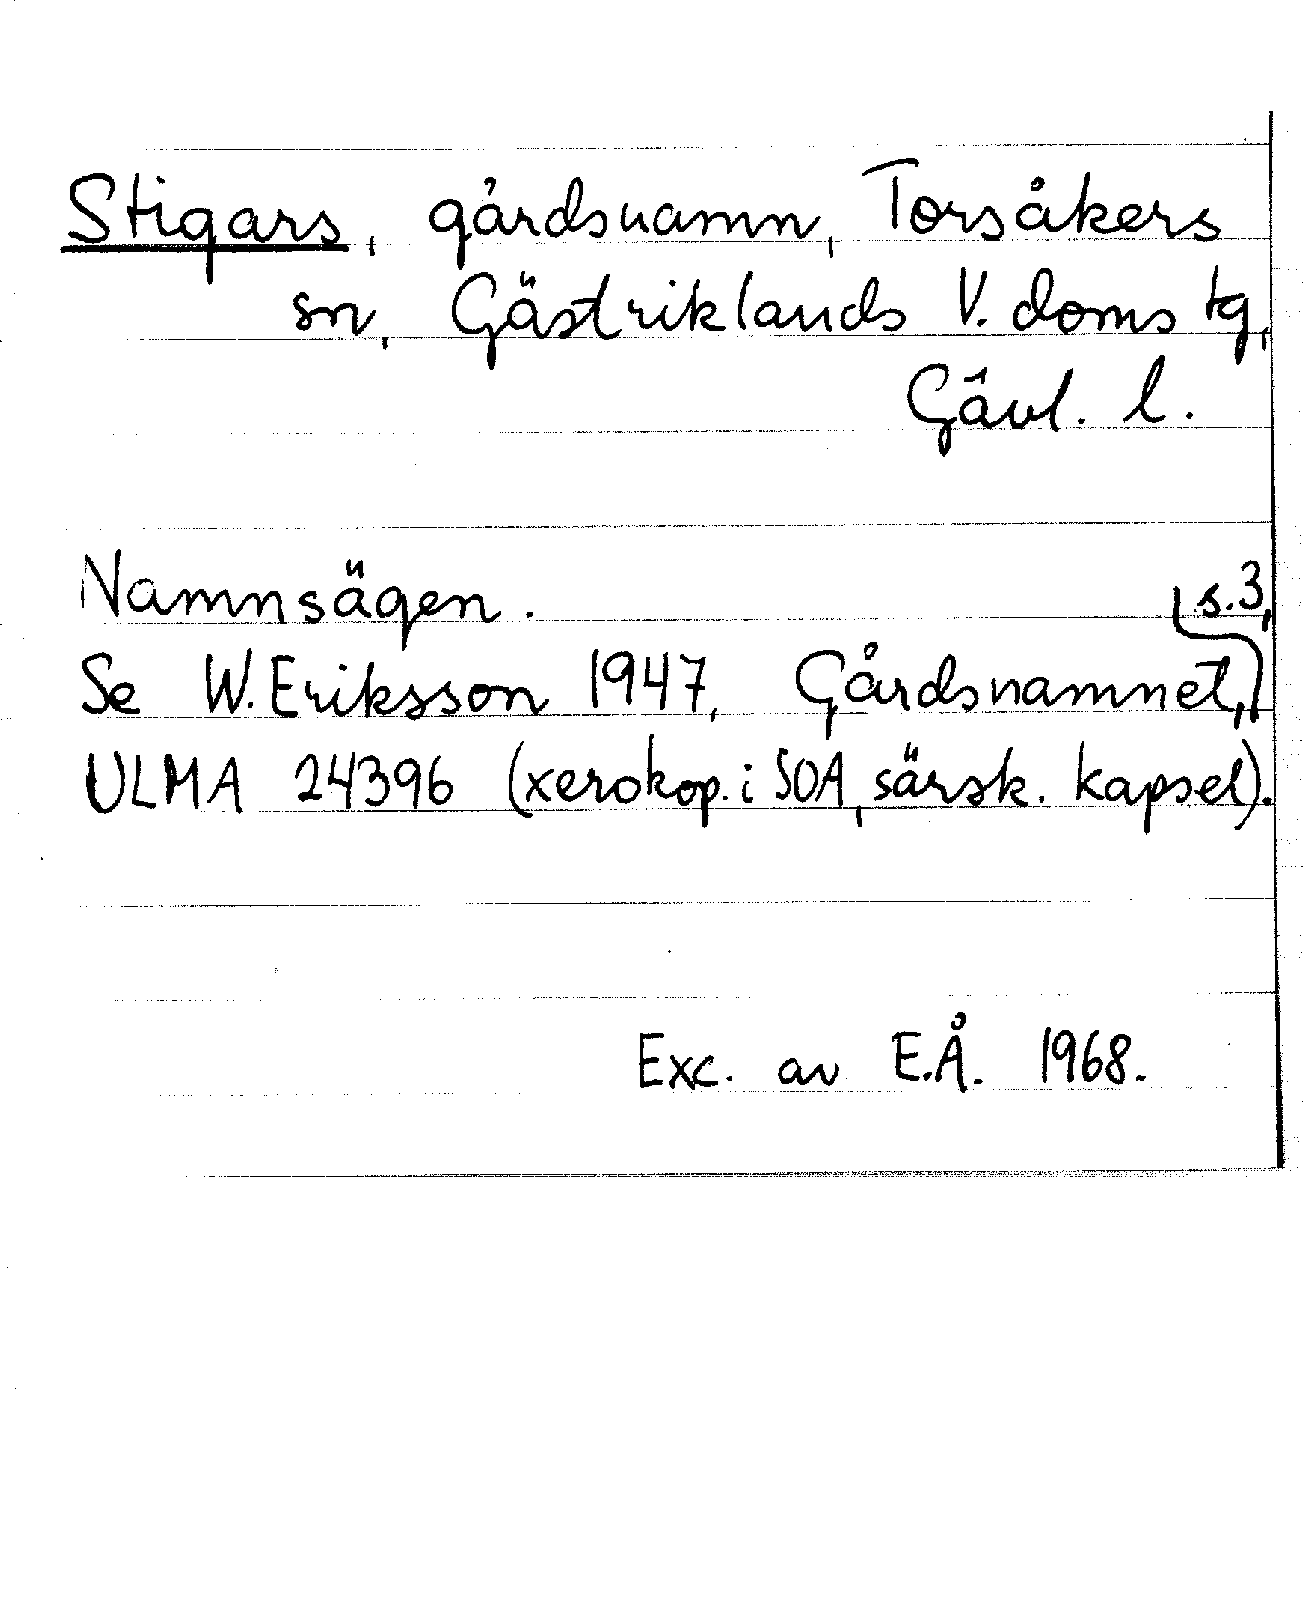 Stigars, gårdsnamn, Torsåkers
sn, Gästriklands V. doms tg,
Gävl. l.
Namnsägen.
Se W. Eriksson 1947, Gårdsnamnet, s. 3,
ULMA 24396 (xerokop. i SOA, särsk. kapsel).
Exc. av E.Å. 1968.